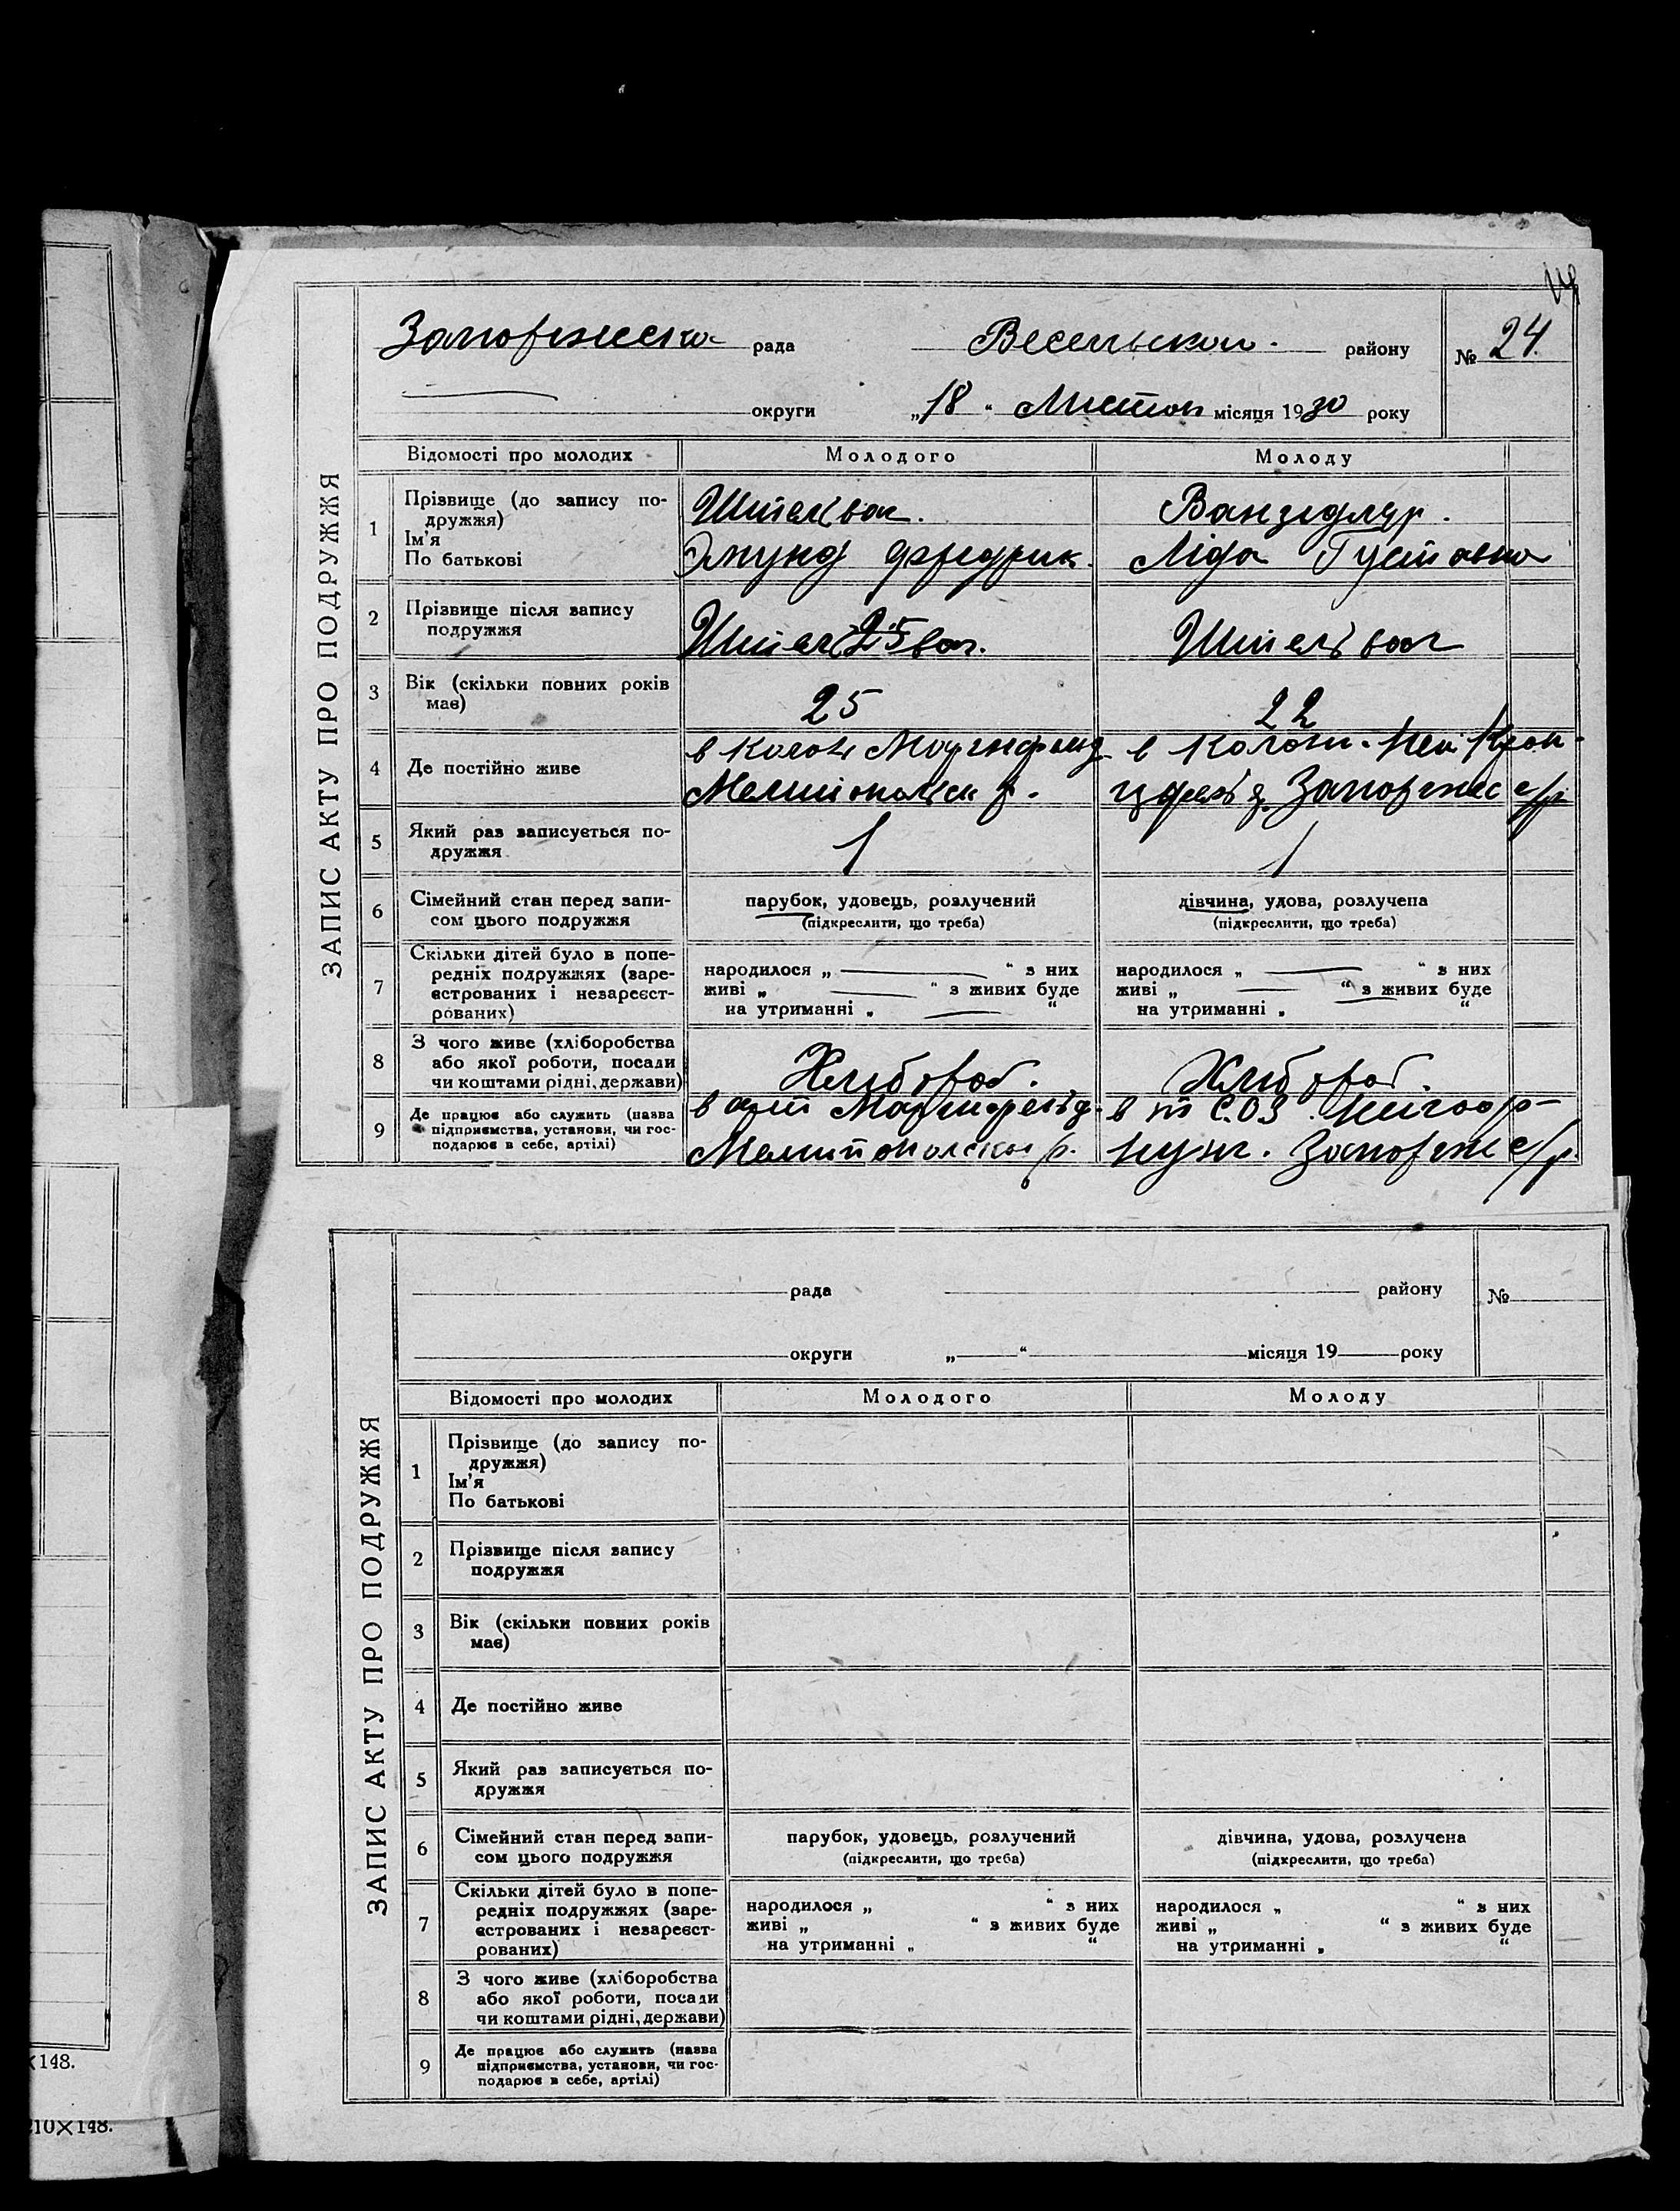 14
Запоріжська рада Весельском району № 24.
округи „18“ Листоп місяця 1930 року
ЗАПИС АКТУ ПРО ПОДРУЖЖЯ
Відомості про молодих Молодого Молоду
1 Прізвище (до запису по-
дружжя)
Ім'я
По батькові
Ванзидлер.
Эмунд Фредрик. Ліда Густавна
2 Прізвище після запису
подружжя
3 Вік (скільки повних років
має)
25 22
4 Де постійно живе
в Колон. в Колон.
Мелитопольск р. Запоріжс с/р
5 Який раз записується по-
дружжя
1 1
6 Сімейний стан перед запи-
сом цього подружжя
парубок, удовець, розлучений дівчина, удова, розлучена
(підкреслити, що треба) (підкреслити, що треба)
7 Скільки дітей було в попе-
редніх подружжях (заре-
єстрованих і незареєст-
рованих)
народилося „ “ з них народилося „ “ з них
живі „ “ з живих буде живі „ “ з живих буде
на утриманні „ “ на утриманні „ “
8 З чого живе (хліборобства
або якої роботи, посади
чи коштами рідні, держави)
Хлібороб. Хлібороб.
9 Де працює або служить (назва
підприємства, установи, чи гос-
подарює в себе, артілі)
в арт Мариенфельд. в т С.О.З.
Мелитопольском р. Запоріж с/р.
рада району №
округи „ “ місяця 19 року
ЗАПИС АКТУ ПРО ПОДРУЖЖЯ
Відомості про молодих Молодого Молоду
1 Прізвище (до запису по-
дружжя)
Ім'я
По батькові
2 Прізвище після запису
подружжя
3 Вік (скільки повних років
має)
4 Де постійно живе
5 Який раз записується по-
дружжя
6 Сімейний стан перед запи-
сом цього подружжя
парубок, удовець, розлучений дівчина, удова, розлучена
(підкреслити, що треба) (підкреслити, що треба)
7 Скільки дітей було в попе-
редніх подружжях (заре-
єстрованих і незареєст-
рованих)
народилося „ “ з них народилося „ “ з них
живі „ “ з живих буде живі „ “ з живих буде
на утриманні „ “ на утриманні „ “
8 З чого живе (хліборобства
або якої роботи, посади
чи коштами рідні, держави)
9 Де працює або служить (назва
підприємства, установи, чи гос-
подарює в себе, артілі)
×148.
210×148.